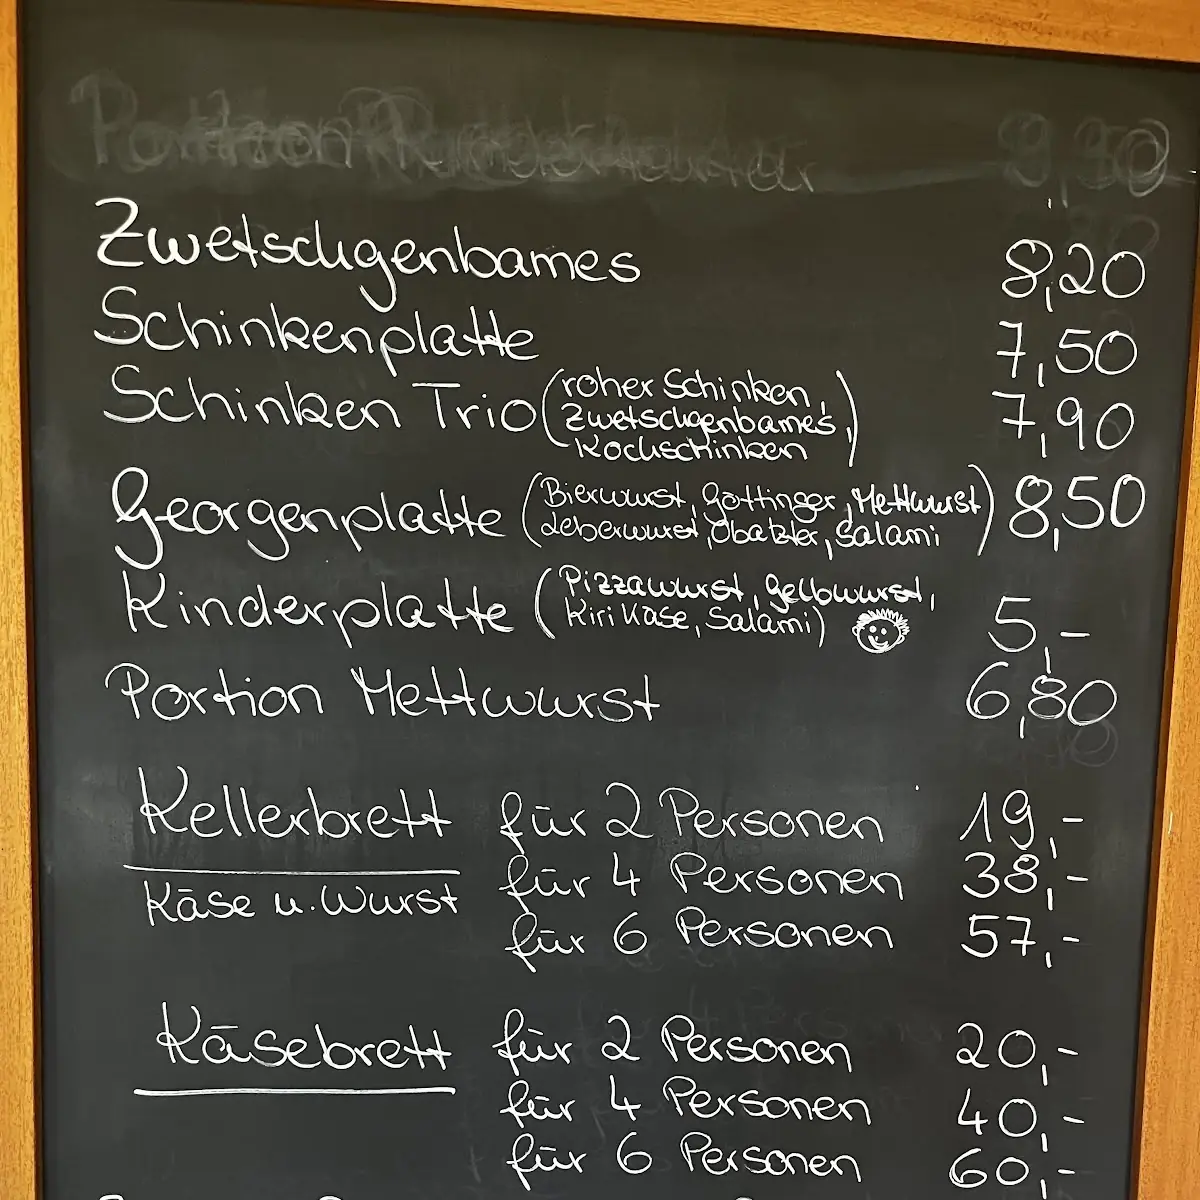 Portion
Zwetschgenbames 8,20
Schinkenplatte 7,50
Schinken Trio (roher Schinken, Zwetschgenbames, Kochschinken) 7,90
Georgenplatte (Bierwurst, Göttinger, Mettwurst Leberwurst, Obatzter, Salami) 8,50
Kinderplatte (Pizzawurst, Gelbwurst, Kiri Käse, Salami) 5,-
Portion Mettwurst 6,80
Kellerbrett für 2 Personen 19,-
für 4 Personen 38,-
Käse u. Wurst
für 6 Personen 57,-
Käsebrett für 2 Personen 20,-
für 4 Personen 40,-
für 6 Personen 60,-